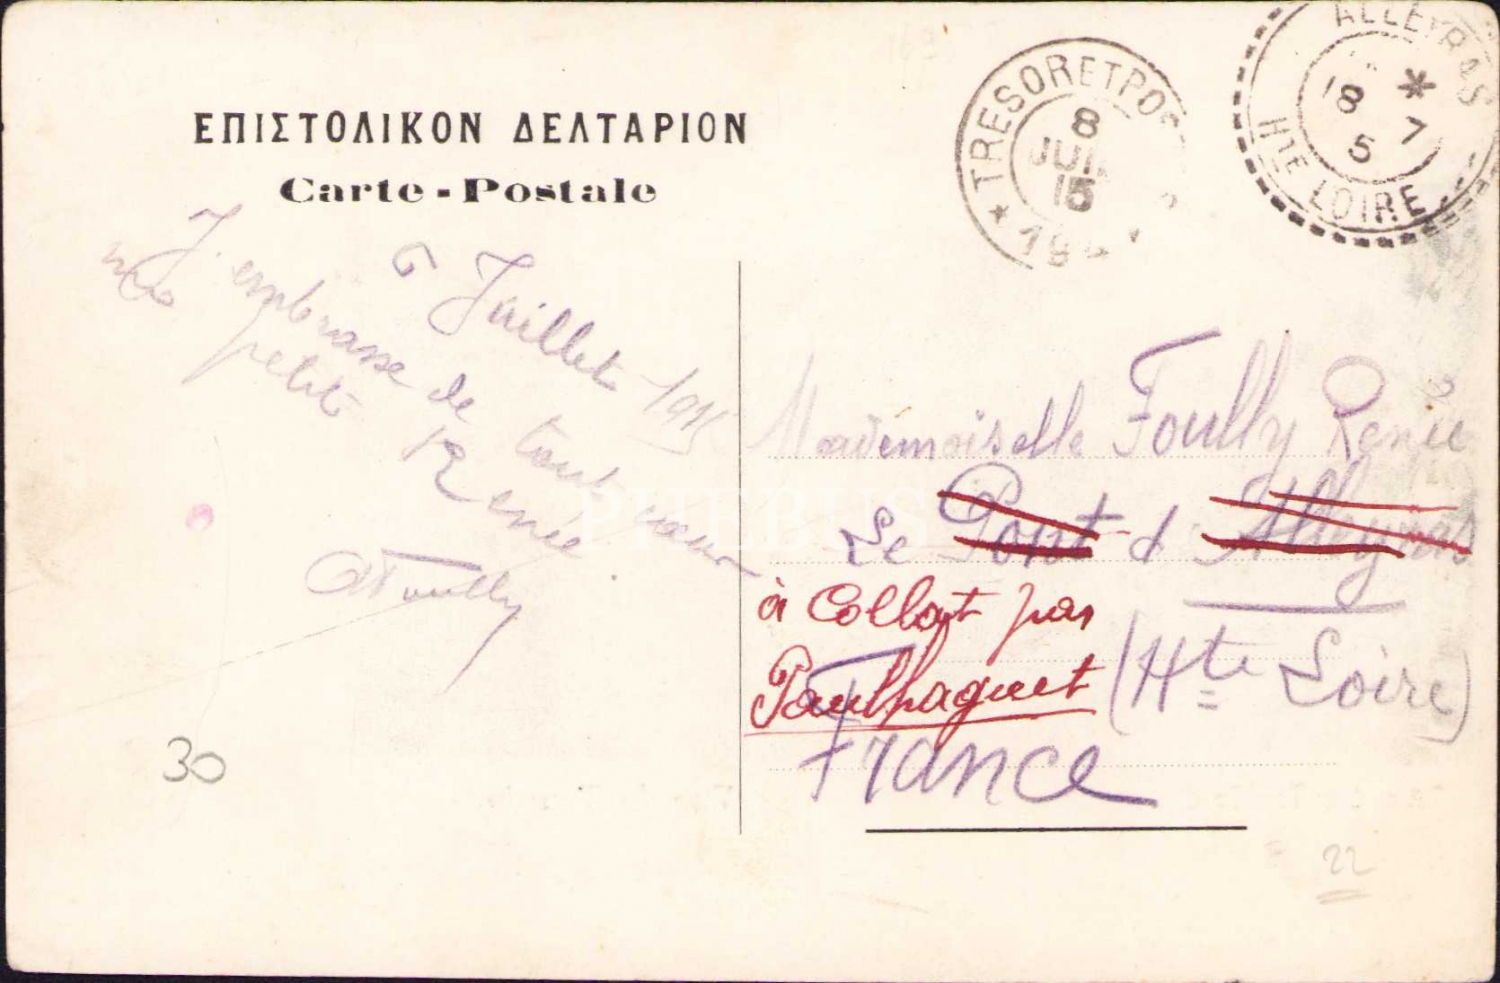 ΕΠΙΣΤΟΛΙΚΟΝ ΔΕΛΤΑΡΙΟΝ
Carte-Postale
TRESORETPOS
8
JUIL
15
ALLEYRAS
18 * 7
5
Hte LOIRE
6 Juillet 1915
J'embrasse de tout coeur
petite Renée
Foully
Mademoiselle Foully Renée
Le Pont d'Alleyras
à Collat par
Paulhaguet
(Hte Loire)
France
30
22
PHEBUS